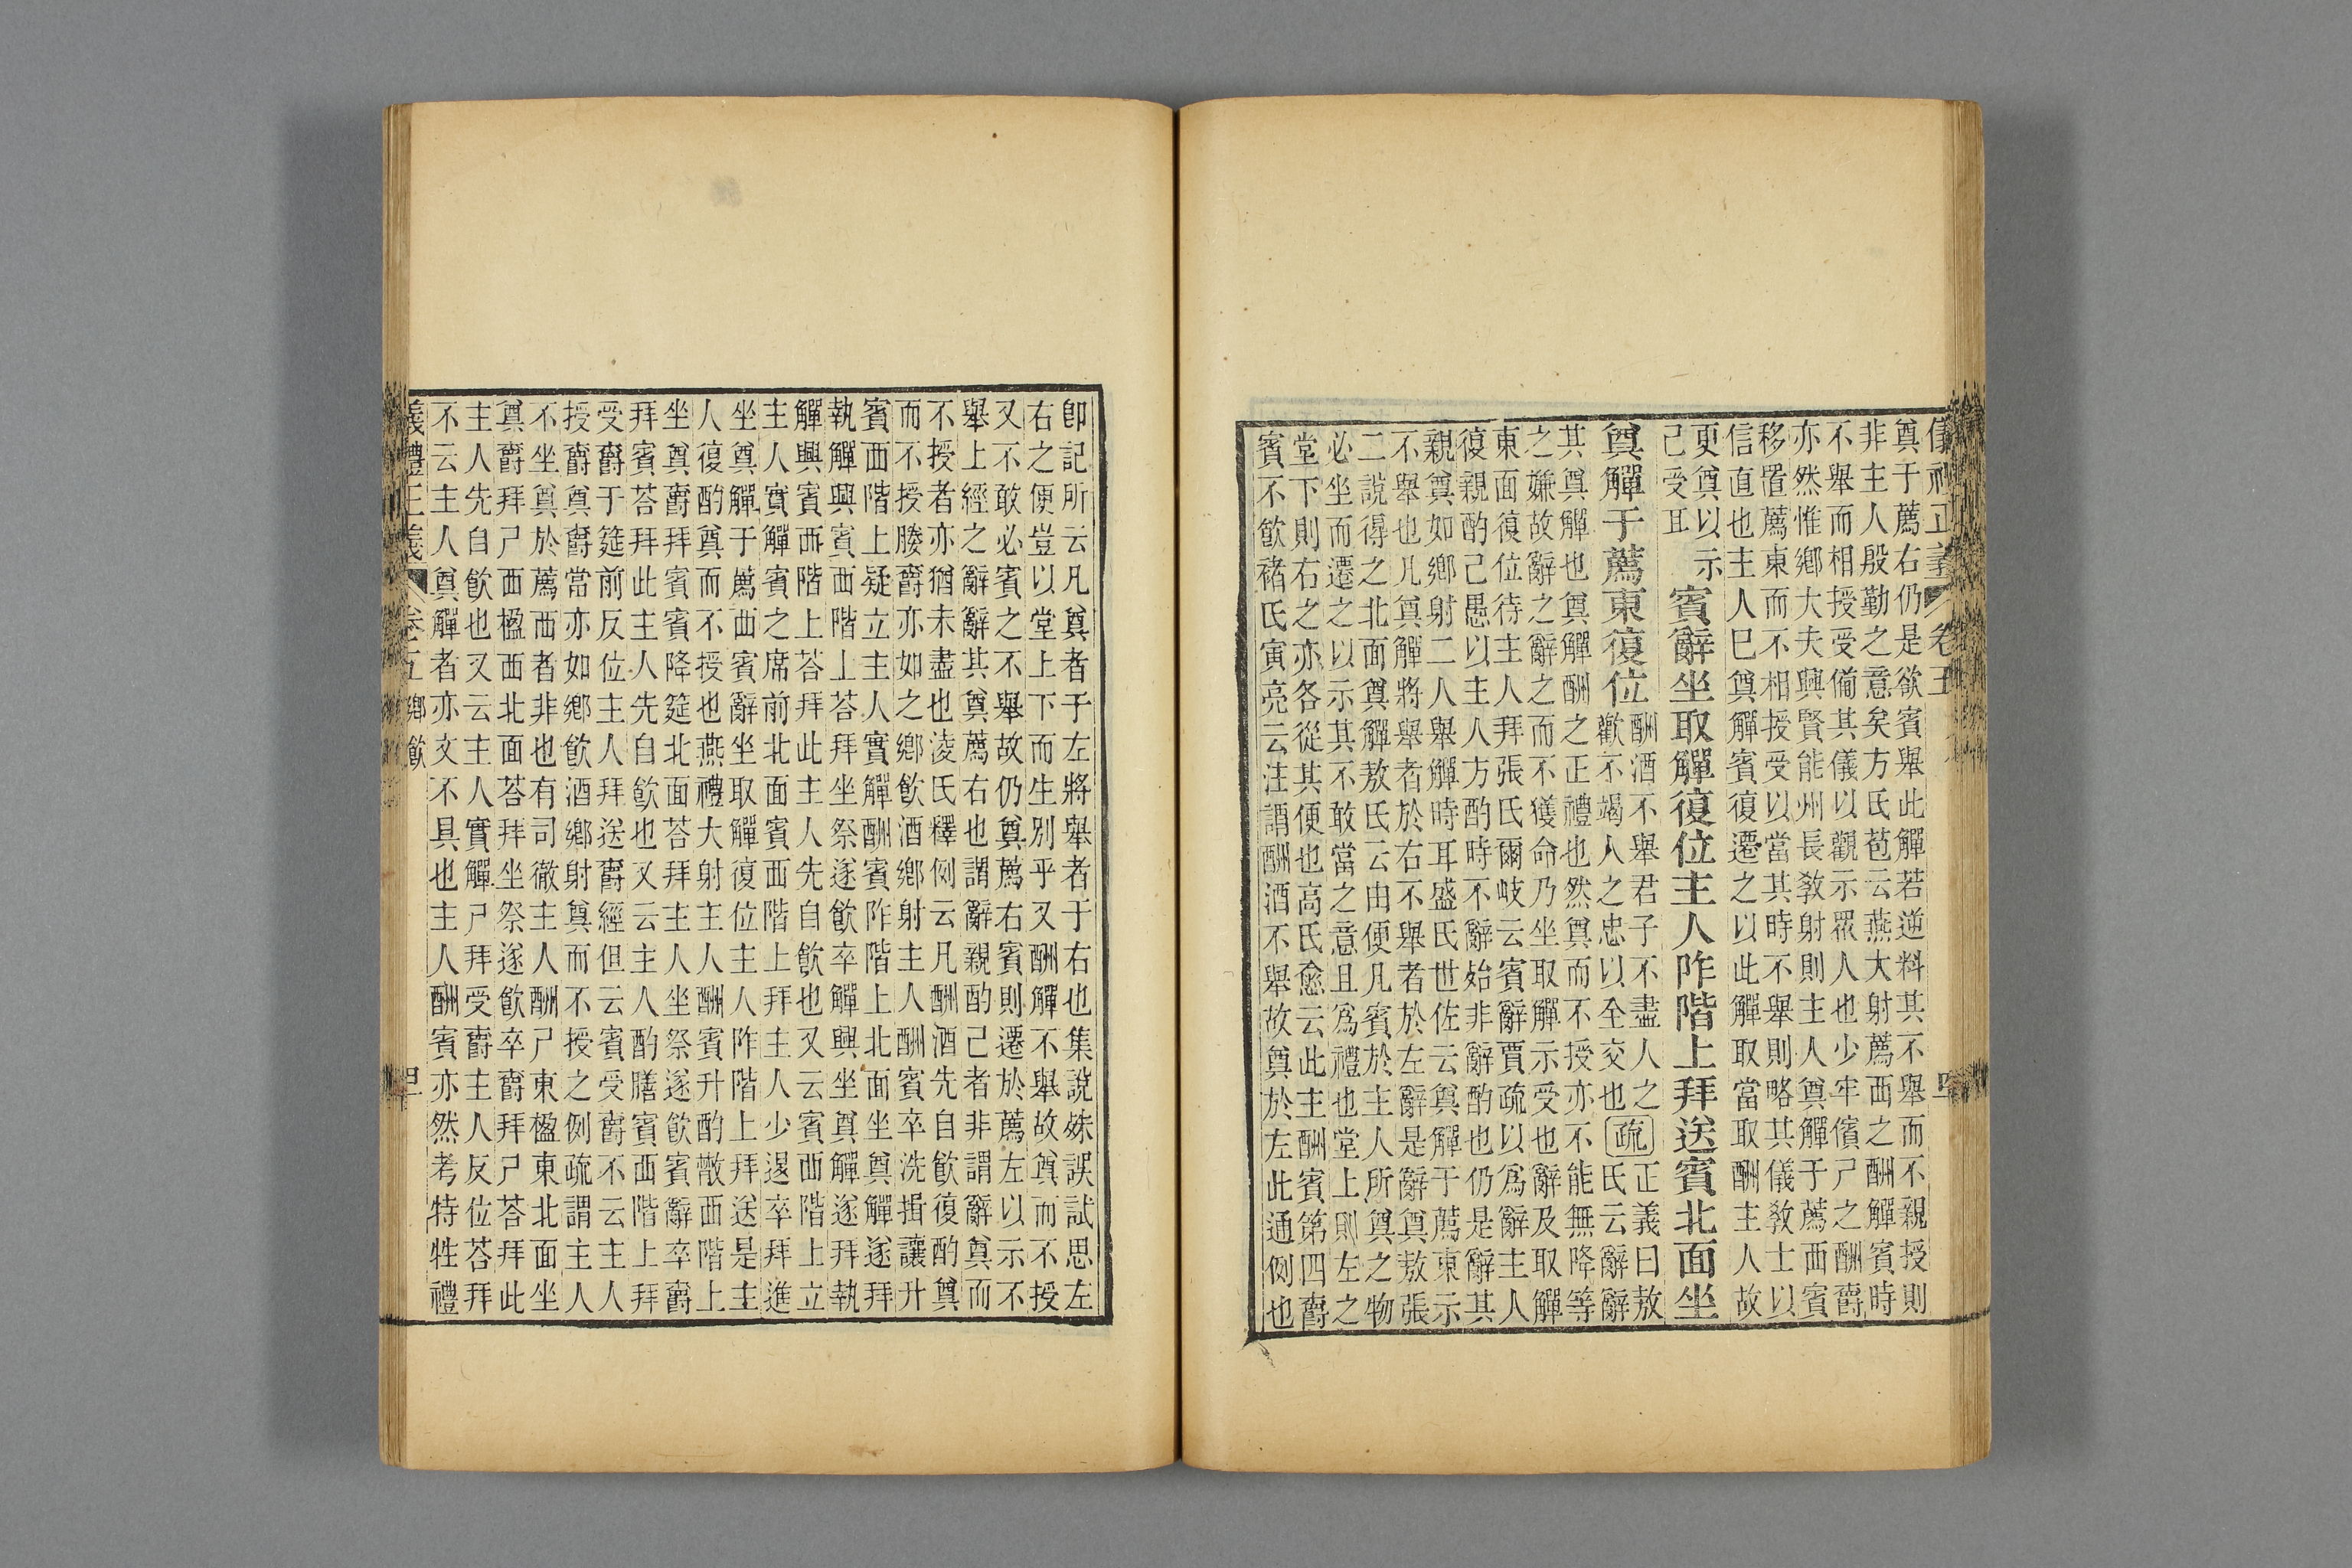 儀禮正義 卷五
奠于薦右仍是欲賓舉此觶若逆料其不舉而不親授則
非主人殷勤之意矣方氏苞云燕大射薦西之酬觶賓時
不舉而相授受備其儀以觀示眾人也少牢儐尸之酬爵
亦然惟鄉大夫興賢能州長敎射則主人奠觶于薦西賓
移置薦東而不相授受以當其時不舉則略其儀敎士以
信直也主人巳奠觶賓復遷之以此觶取當取酬主人故
更奠以示
己受耳
賓辭坐取觶復位主人阼階上拜送賓北面坐
奠觶于薦東復位
酬酒不舉君子不盡人之
歡不竭人之忠以全交也
疏
正義曰敖
氏云辭辭
其奠觶也奠觶酬之正禮也然奠而不授亦不能無降等
之嫌故辭之辭之而不獲命乃坐取觶示受也辭及取觶
東面復位待主人拜張氏爾岐云賓辭賈疏以爲辭主人
復親酌己愚以主人方酌時不辭始非辭酌也仍是辭其
親奠如鄉射二人舉觶時耳盛氏世佐云奠觶于薦東示
不舉也凡奠觶將舉者於右不舉者於左辭是辭奠敖張
二說得之北面奠觶敖氏云由便凡賓於主人所奠之物
必坐而遷之以示其不敢當之意且爲禮也堂上則左之
堂下則右之亦各從其便也高氏愈云此主酬賓第四爵
賓不飮褚氏寅亮云注謂酬酒不舉故奠於左此通例也
卽記所云凡奠者于左將舉者于右也集說殊誤試思左
右之便豈以堂上下而生別乎又酬觶不舉故奠而不授
又不敢必賓之不舉故仍奠薦右賓則遷於薦左以示不
舉上經之辭辭其奠薦右也謂辭親酌己者非謂辭奠而
不授者亦猶未盡也淩氏釋例云凡酬酒先自飮復酌奠
而不授媵爵亦如之鄉飮酒鄉射主人酬賓卒洗揖讓升
賓西階上疑立主人實觶酬賓阼階上北面坐奠觶遂拜
執觶興賓西階上荅拜坐祭遂飮卒觶興坐奠觶遂拜執
觶興賓西階上荅拜此主人先自飮也又云賓西階上立
主人實觶賓之席前北面賓西階上拜主人少退卒拜進
坐奠觶于薦西賓辭坐取觶復位主人阼階上拜送是主
人復酌奠而不授也燕禮大射主人酬賓升酌散西階上
坐奠爵拜賓賓降筵北面荅拜主人坐祭遂飮賓辭卒爵
拜賓荅拜此主人先自飮也又云主人酌膳賓西階上拜
受爵于筵前反位主人拜送爵經但云賓受爵不云主人
授爵奠爵當亦如鄉飮酒鄉射奠而不授之例疏謂主人
不坐奠於薦西者非也有司徹主人酬尸東楹東北面坐
奠爵拜尸西楹西北面荅拜坐祭遂飮卒爵拜尸荅拜此
主人先自飮也又云主人實觶尸拜受爵主人反位荅拜
不云主人奠觶者亦文不具也主人酬賓亦然考特牲禮
卷五 鄉飮